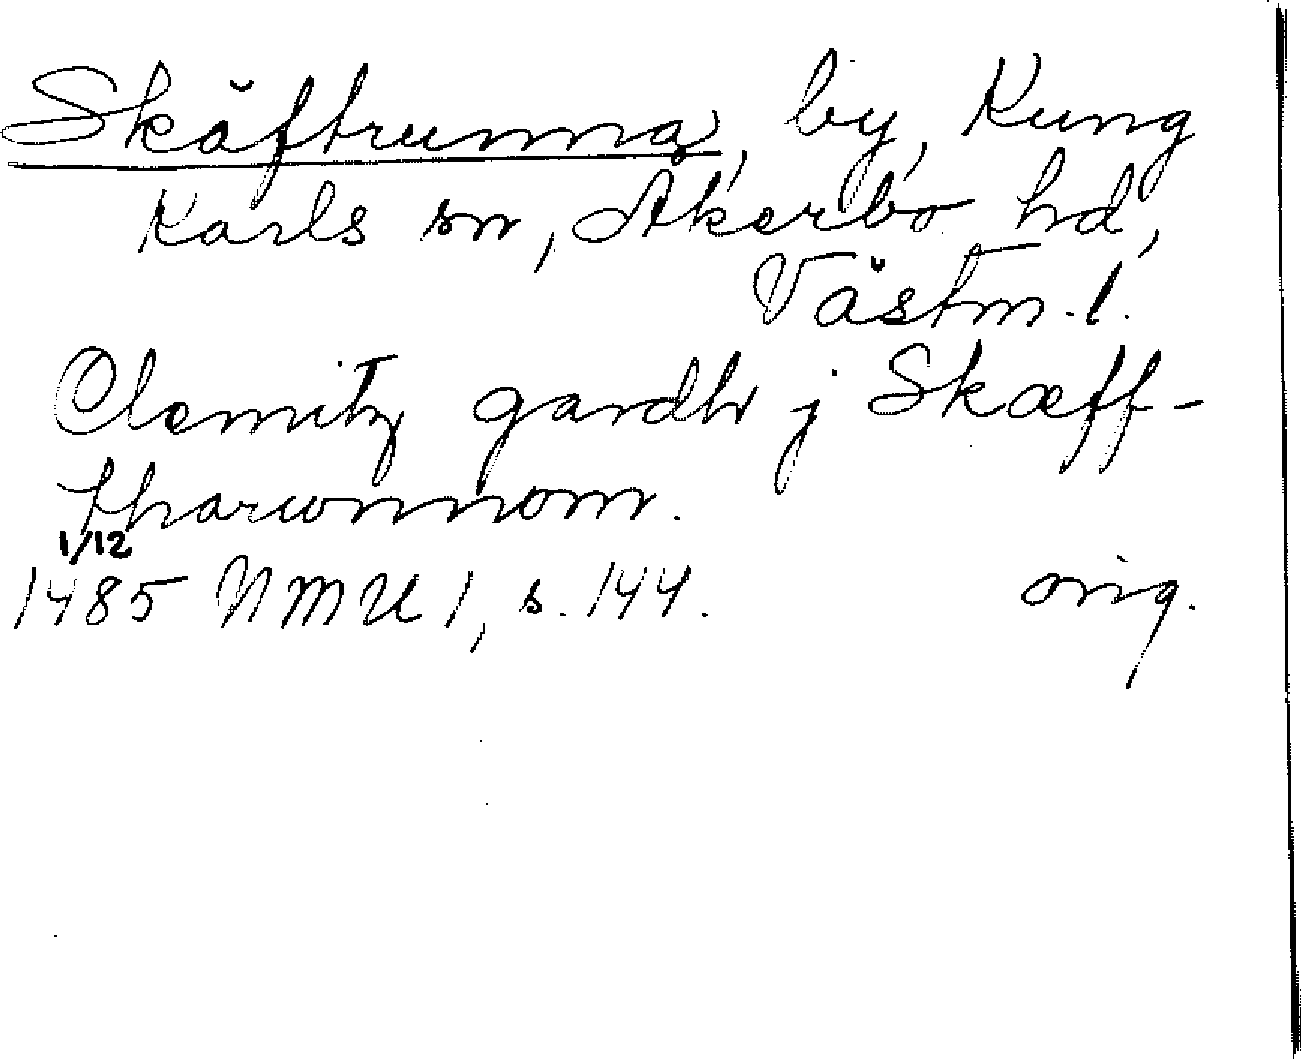 Skäftrunna, by, Kung
Karls sn, Åkerbo hd,
Västm. l.
Clemitz gardh j Skæff-
tharwnnom.
1/12
1485 NMU 1, s. 144. orig.